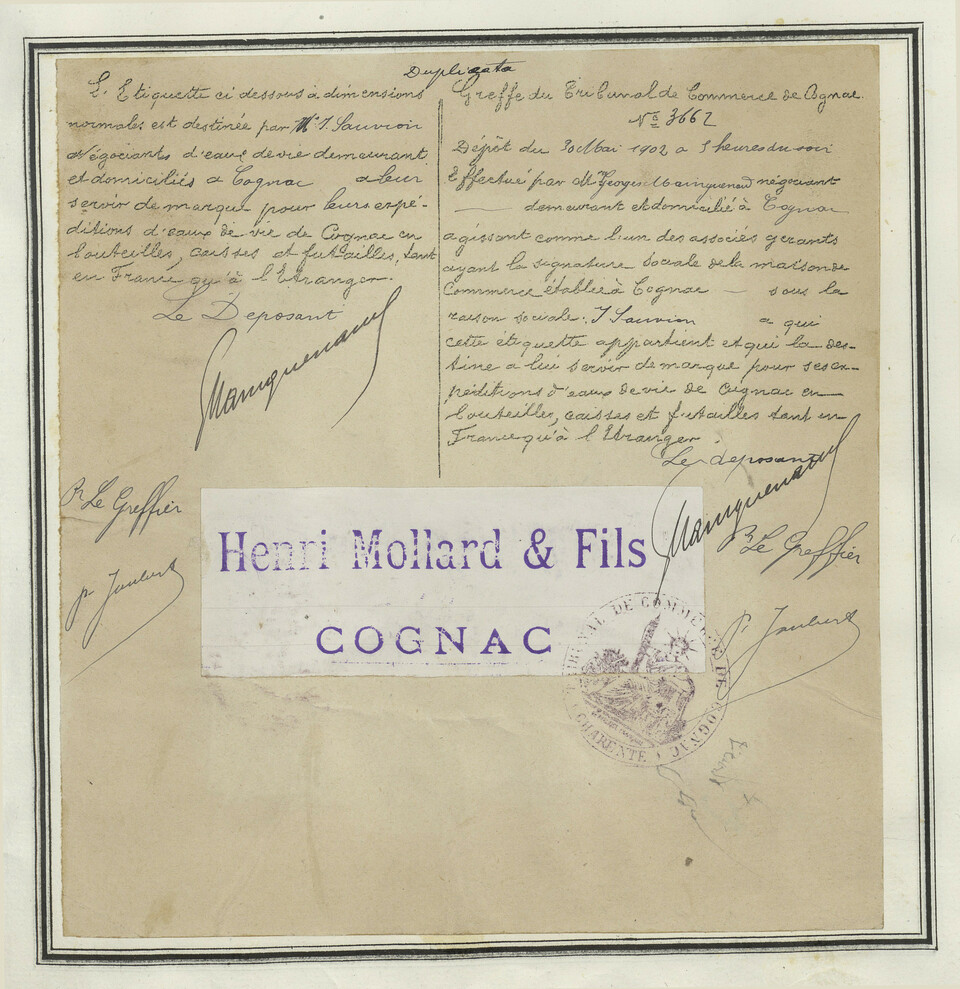 Duplicata
L'Etiquette ci dessous à dimensions
normales est destinée par Mr J. Sauvion
Négociants d'eaux de vie demeurant
et domiciliés a Cognac a leur
servir de marque pour leurs expé-
ditions d'eaux de vie de Cognac en
bouteilles, caisses et futailles, tant
en France qu'à l'Etranger.
Le Deposant
GMainguenaud
Pr Le Greffier
Pr Joubert
Greffe du Tribunal de Commerce de Cognac.
No 3662
Dépôt du 30 Mai 1902 a 5 heures du soir
Effectué par Mr Georges Mainguenaud négociant
demeurant et domicilié à Cognac
agissant comme l'un des associés gerants
ayant la signature sociale de la maison de
Commerce établie à Cognac — sous la
raison sociale: J Sauvion a qui
cette étiquette appartient et qui la des-
tine a lui servir de marque pour ses ex-
péditions d'eaux de vie de Cognac en
bouteilles, caisses et futailles tant en
France qu'à l'Etranger.
Le deposant
GMainguenaud
Pr Le Greffier
Pr Joubert
Henri Mollard & Fils
COGNAC
TRIBUNAL DE COMMERCE DE COGNAC
(CHARENTE)